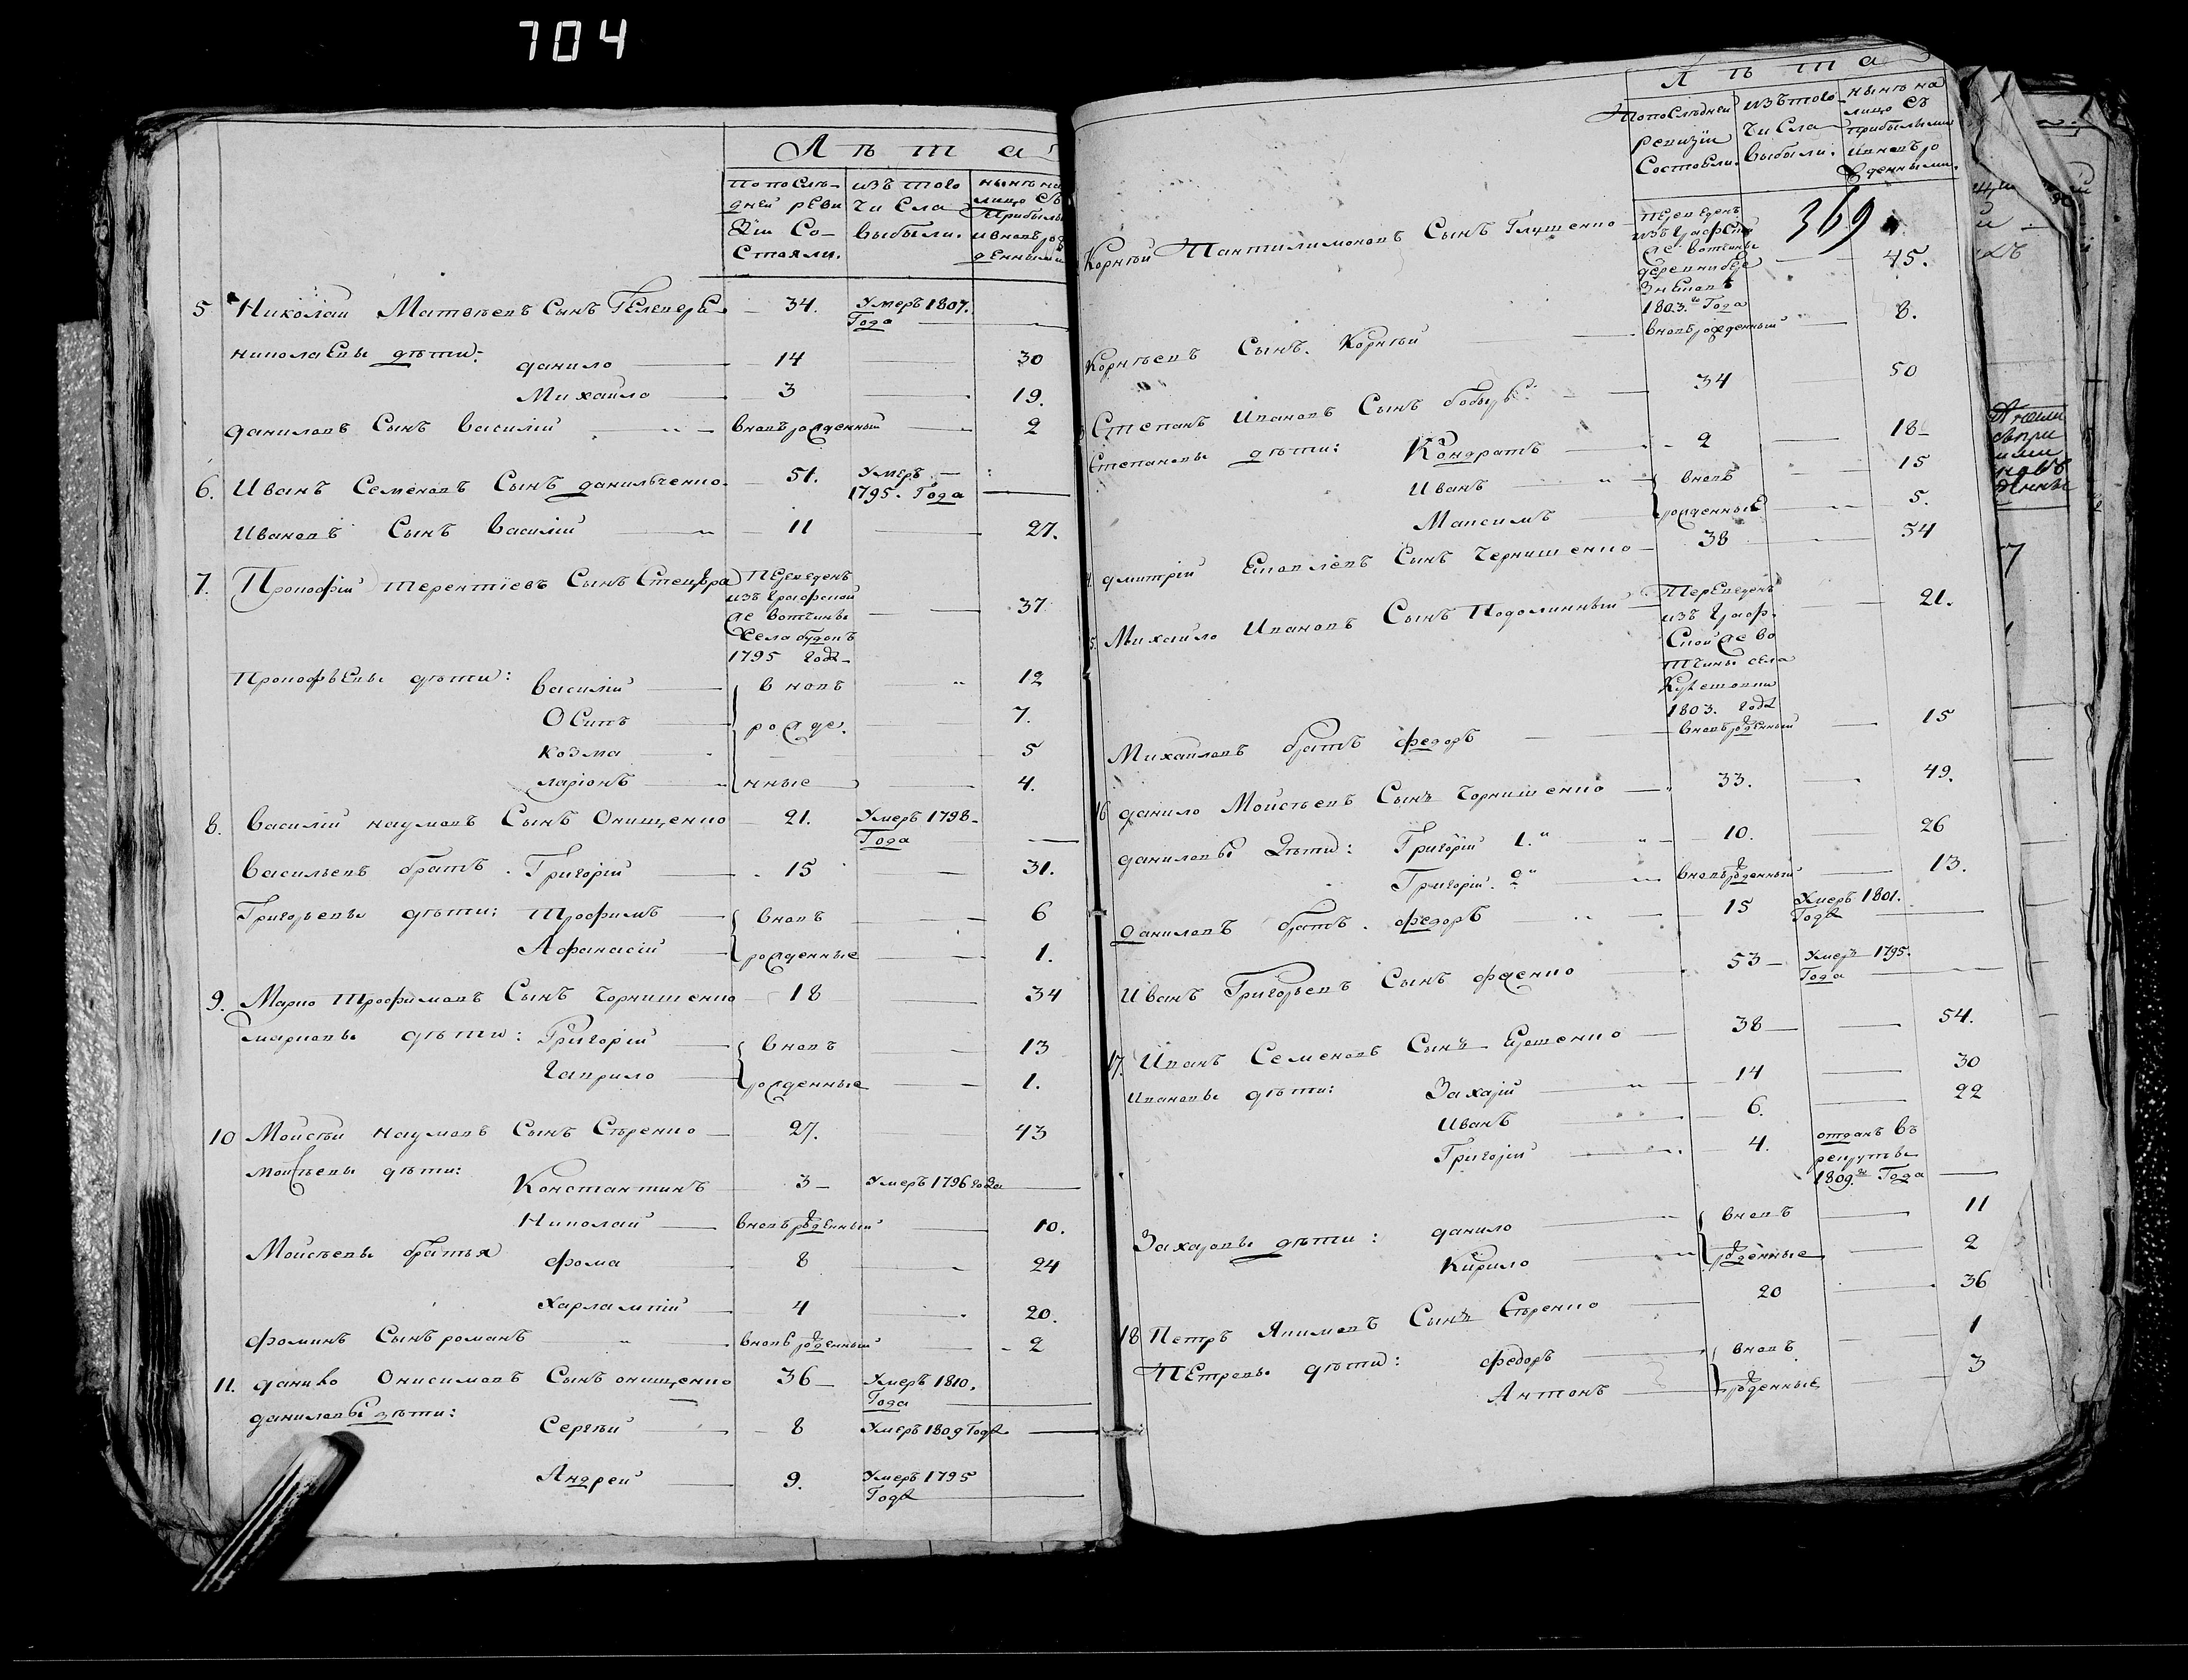 704
Лѣта
по послѣ- изъ того нынѣ на
дней реви числа лицо съ
зіи со- выбыли. прибылы
стояли. и вновь рож
денными
5 Николай Матвѣевъ Сынъ 34. Умеръ 1807.
Года
Николаевы дѣти: данило 14 30
Михайло 3 19.
даниловъ Сынъ Василій вновьрожденный 2
6. Иванъ Семеновъ Сынъ данильченко 51. Умеръ
1795. Года
Ивановъ Сынъ Василій 11 27.
7. Прокофій Терентіевъ Сынъ Переведенъ
изъ Графской
же вотчины 37
Села будокъ
1795 года
Прокофьевы дѣти: Василій вновь 12
Осипъ рожде. 7.
Козма 5
ларіонъ нные 4.
8. Василій наумовъ Сынъ Онищенко 21. Умеръ 1798
Года
Васильевъ братъ Григорій 15 31.
Григорьевы дѣти: Трофимъ вновь 6
Афанасій рожденные 1.
9. Марко Трофимовъ Сынъ Чорнишенко 18 34
марковы дѣти: Григорій вновь 13
Гаврило рожденные 1.
10 Мойсѣй наумовъ Сынъ Сѣренко 27. 43
мойсѣевы дѣти:
Константинъ 3 Умеръ 1796 года
Николай вновьрожденный 10.
Мойсѣевы братья фома 8 24
Харлампій 4 20.
фоминъ Сынъ романъ вновьрожденный 2
11. данило Онисимовъ Сынъ онищенко 36 Умеръ 1810.
Года
даниловы дѣти:
Сергѣй 8 Умеръ 1809 Года
Андрей 9. Умеръ 1795
Года
Лѣта
По послѣдней изъ того нынѣ на
ревизіи числа лицо съ
Состояли. выбыли. прибылыми
и вновь ро
жденными.
369
Корнѣй Пантилимоновъ Сынъ Глущенко Переведенъ
изъ Графской
же вотчины 45.
деревни
1803.го Года
Корнѣевъ Сынъ Корнѣй вновьрожденный 8.
Степанъ Ивановъ Сынъ бобырь 34 50
Степановы дѣти: Кондратъ 2 18
Иванъ вновь 15
Максимъ рожденные 5.
дмитрій Сынъ Чернишенко 38 54
5. Михайло Ивановъ Сынъ Подолинный Переведенъ
изъ Граф- 21.
ской же во
тчины села
1803. года
Михайловъ братъ федоръ вновьрожденный 15
16 данило Мойсѣевъ Сынъ Чорнишенко 33. 49.
даниловы дѣти: Григорій 1." 10. 26
Григорій. 2" вновьрожденный 13.
даниловъ братъ федоръ 15 Умеръ 1801.
Года
Иванъ Григорьевъ Сынъ 53 Умеръ 1795.
Года
17. Иванъ Семеновъ Сынъ 38 54.
Ивановы дѣти: Захарій 14 30
Иванъ 6. 22
Григорій 4. отданъ въ
рекруты
1809.го Года
Захаровы дѣти: данило вновь 11
Кирило рожденные 2
18 Петръ Якимовъ Сынъ Сѣренко 20 36
Петровы дѣти: федоръ вновь 1
Антонъ рожденные 3